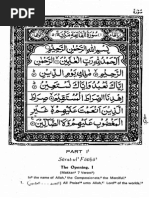 بِسْمِ اللهِ الرَّحْمٰنِ الرَّحِيْمِ
اَلْحَمْدُ لِلّٰهِ رَبِّ الْعٰلَمِيْنَ الرَّحْمٰنِ
الرَّحِيْمِ مٰلِكِ يَوْمِ الدِّيْنِ اِيَّاكَ
نَعْبُدُ وَاِيَّاكَ نَسْتَعِيْنُ اِهْدِنَا
الصِّرَاطَ الْمُسْتَقِيْمَ صِرَاطَ
الَّذِيْنَ اَنْعَمْتَ عَلَيْهِمْ غَيْرِ
الْمَغْضُوْبِ عَلَيْهِمْ وَلَا الضَّآلِّيْنَ
PART I
Sūrat-ul-Fātiḥa
The Opening. I
(Makkan 7 Verses)
In the name of Allāh, the Compassionate, the Merciful.
1. All Praise unto Allāh, Lord of the worlds,